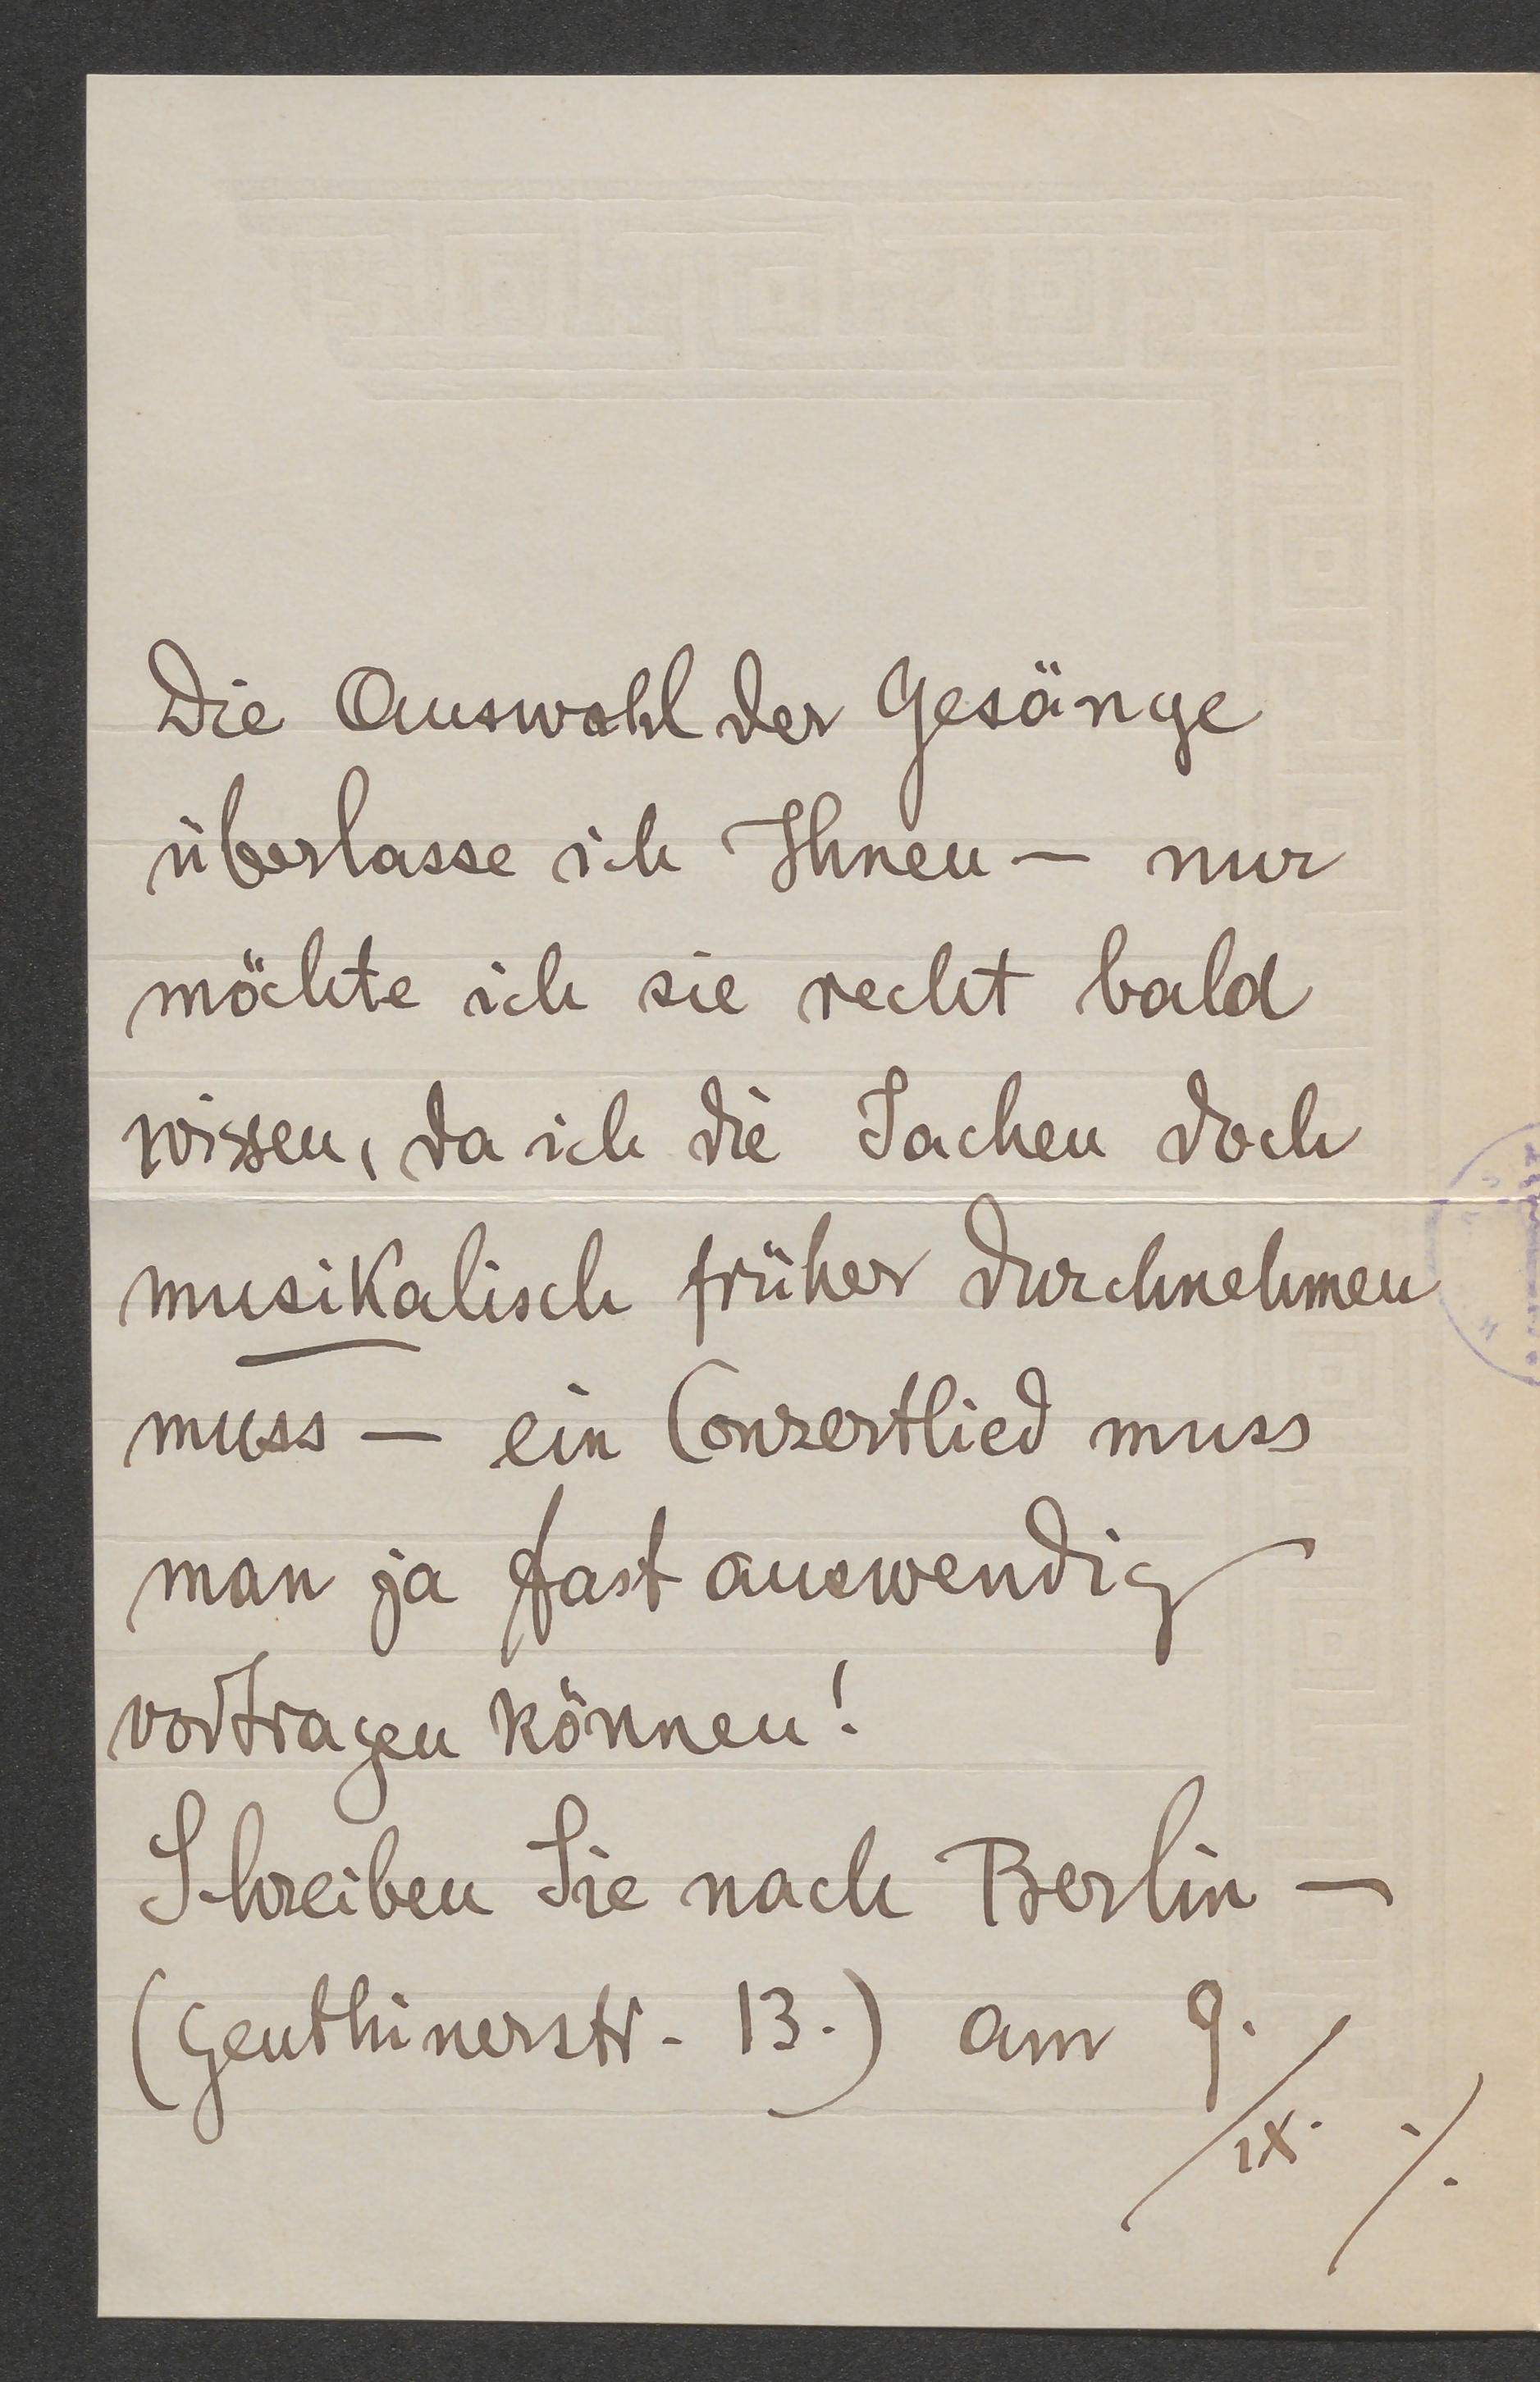 Die Auswahl der Gesänge
überlasse ich Ihnen — nur
möchte ich sie recht bald
wissen, da ich die Sachen doch
musikalisch früher durchnehmen
muss — ein Conzertlied muss
man ja fast auswendig
vortragen können!
Schreiben Sie nach Berlin —
(Genthinerstr. 13.) am 9./IX. ./.